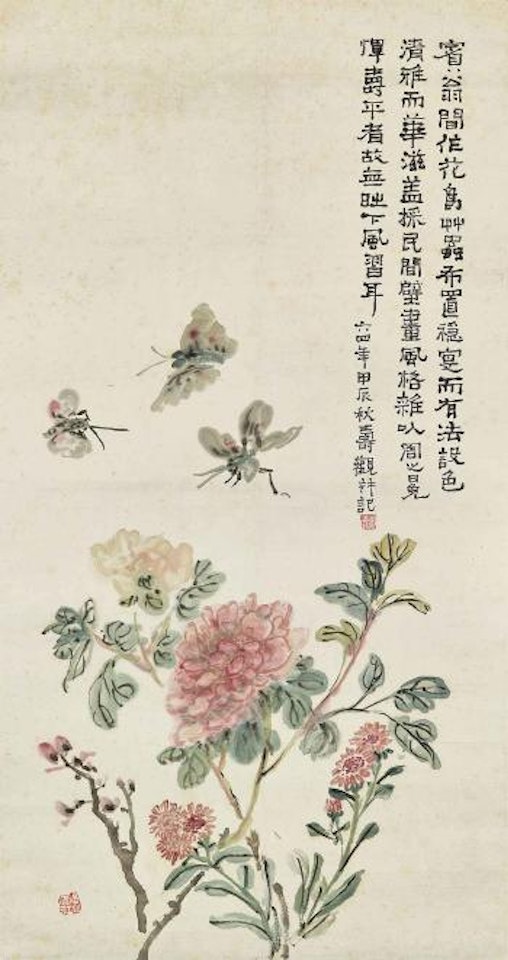 賓翁間作花鳥艸蟲布置穩寔而有法設色
清雅而華滋蓋採民間壁畫風格雜以周之冕
惲壽平者故無時下風習耳
六四年甲辰秋壽觀并記